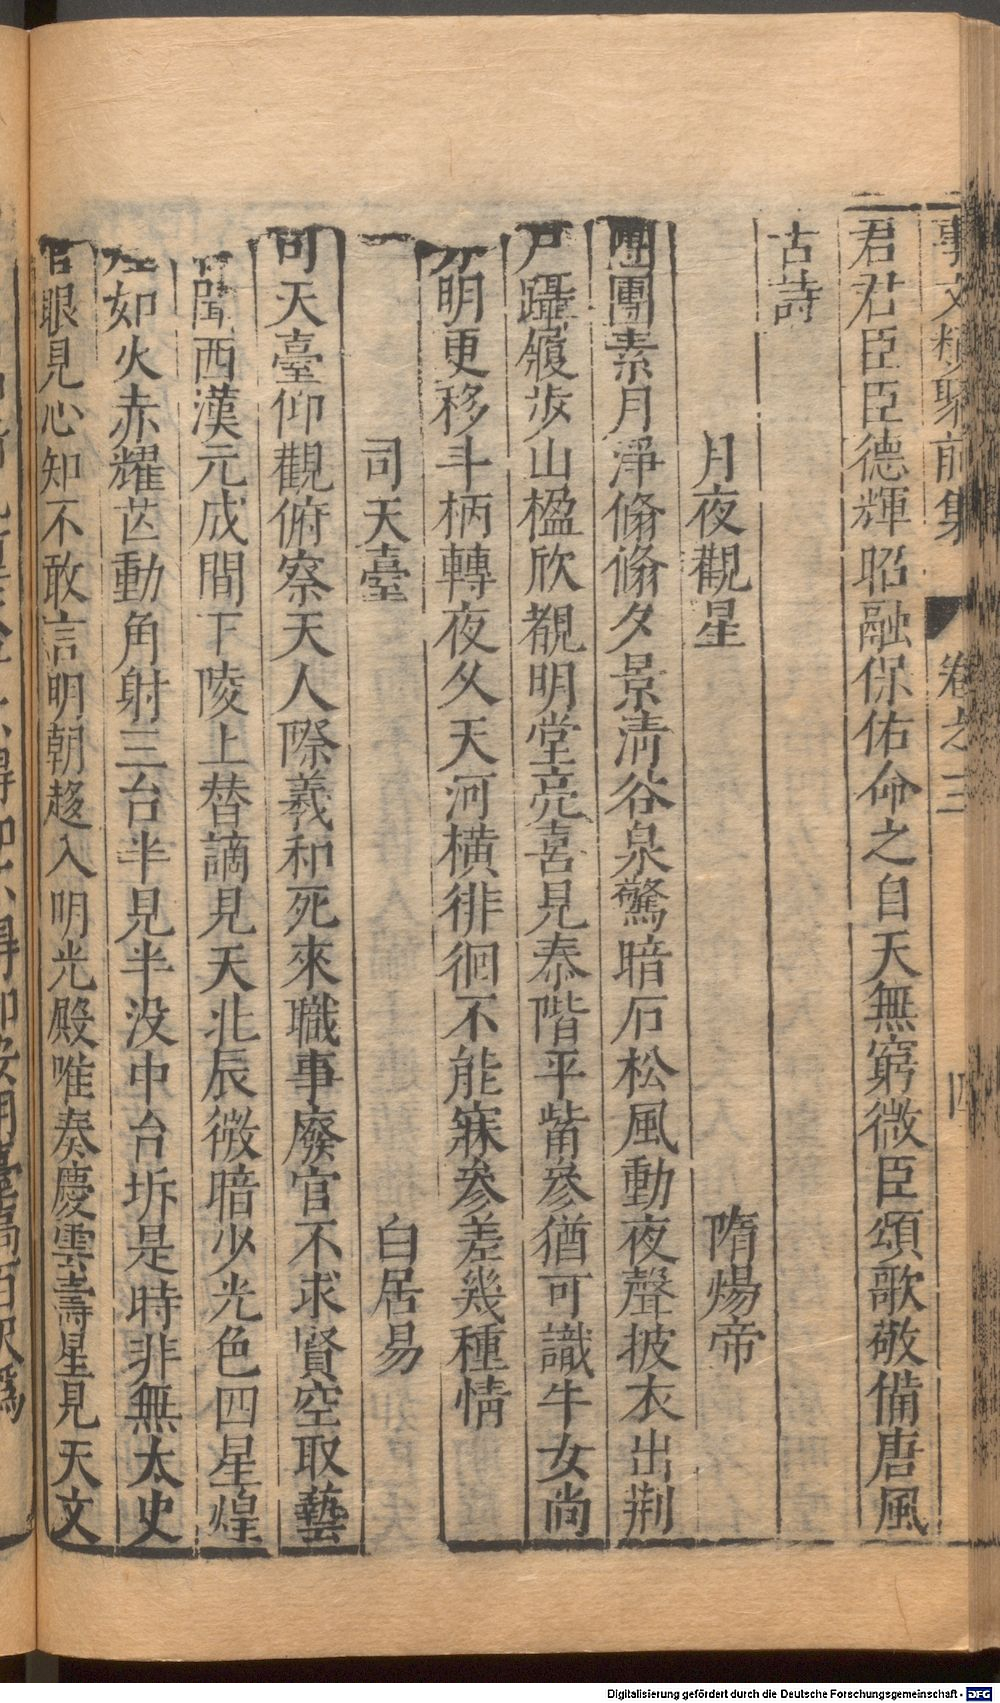 事文類聚前集 卷之三 四
君君臣臣德輝昭融保佑命之自天無窮微臣頌歌敬備唐風
古詩
月夜觀星 隋煬帝
團團素月淨翛翛夕景清谷泉驚暗石松風動夜聲披衣出荆
戶躡履步山楹欣覩明堂亮喜見泰階平觜參猶可識牛女尚
分明更移斗柄轉夜久天河橫徘徊不能寐參差幾種情
司天臺 白居易
司天臺仰觀俯察天人際羲和死來職事廢官不求賢空取藝
聞西漢元成間下陵上替謫見天北辰微暗少光色四星煌
煌如火赤耀芒動角射三台半見半没中台坼是時非無太史
官眼見心知不敢言明朝趍入明光殿唯奏慶雲壽星見天文
Digitalisierung gefördert durch die Deutsche Forschungsgemeinschaft - DFG